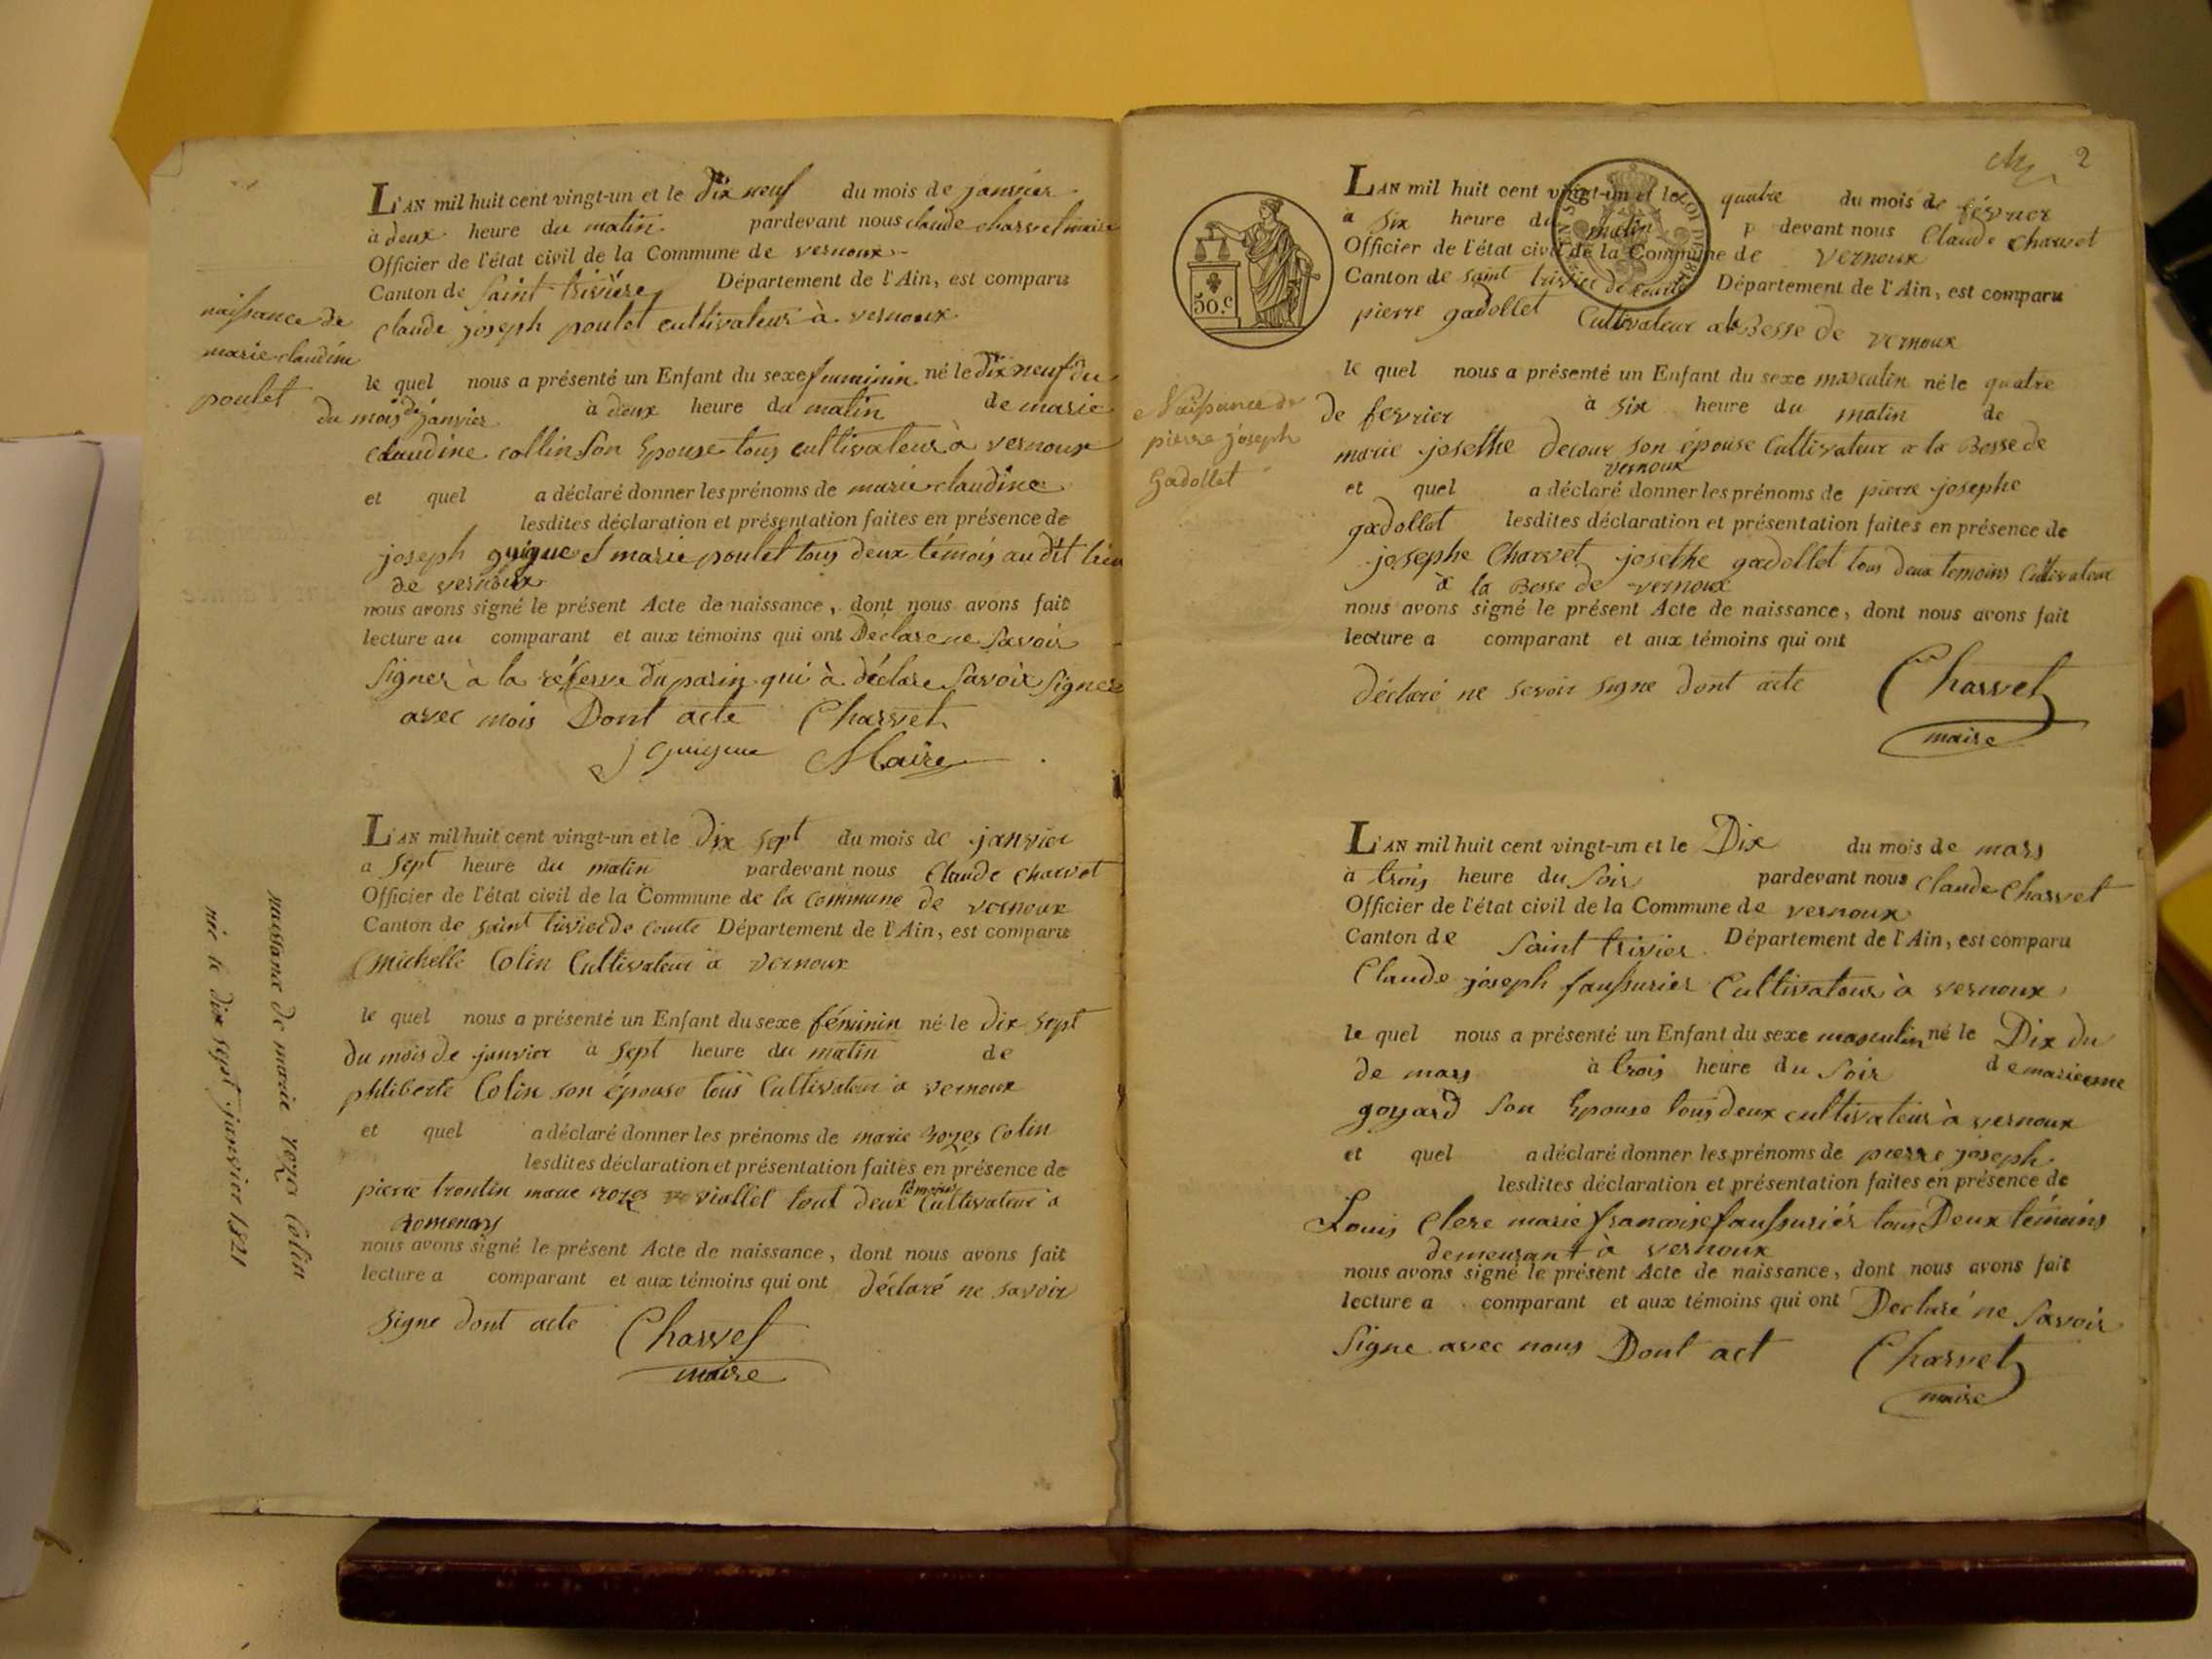 L'AN mil huit cent vingt-un et le dix neuf du mois de janvier
à deux heure du matin pardevant nous claude charvet maire
Officier de l'état civil de la Commune de vernoux
Canton de Saint trivière Département de l'Ain, est comparu
claude joseph poulet cultivateur à vernoux
naissance de
marie claudine
poulet
le quel nous a présenté un Enfant du sexe feuminin né le dix neuf du
du mois de janvier à deux heure du matin de marie
claudine collin son Epouse tous cultivateur à vernoux
et quel a déclaré donner les prénoms de marie claudine
lesdites déclaration et présentation faites en présence de
joseph guigue et marie poulet tous deux témois au dit lieu
de vernoux
nous avons signé le présent Acte de naissance, dont nous avons fait
lecture au comparant et aux témoins qui ont Déclare ne Savoir
Signer à la réserve du parin qui à déclare Savoir Signer
avec mois Dont acte Charvet
j guigue Maire
L'AN mil huit cent vingt-un et le dix sept du mois de janvier
a Sept heure du matin pardevant nous Claude Charvet
Officier de l'état civil de la Commune de la Commune de vernoux
Canton de saint trivier de courte Département de l'Ain, est comparu
Michelle Colin Cultivateur a vernoux
naissance de marie rozes Colin
née le dix sept janvier 1821
le quel nous a présenté un Enfant du sexe féminin né le dix sept
du mois de janvier a Sept heure du matin de
philiberte Colin son épouse tous Cultivateur a vernoux
et quel a déclaré donner les prénoms de marie rozes Colin
lesdites déclaration et présentation faites en présence de
pierre trontin marie rozes viallet tout deux témoins Cultivateur a
Romenay
nous avons signé le présent Acte de naissance, dont nous avons fait
lecture a comparant et aux témoins qui ont déclaré ne savoir
Signe dont acte Charvet
maire
2
L'AN mil huit cent vingt-un et le quatre du mois de février
a six heure du matin p devant nous Claude Charvet
Officier de l'état civil de la Commune de vernoux
Canton de saint trivier de courte Département de l'Ain, est comparu
pierre gadollet Cultivateur a la Besse de vernoux
50.c
le quel nous a présenté un Enfant du sexe masculin né le quatre
de fevrier à six heure du matin de
marie josethe decour son épouse Cultivateur a la Besse de
vernoux
Naissance de
pierre joseph
Gadollet
et quel a déclaré donner les prénoms de pierre josephe
gadollet lesdites déclaration et présentation faites en présence de
josephe Charvet josethe gadollet tous deux temoins Cultivateur
à la Besse de vernoux
nous avons signé le présent Acte de naissance, dont nous avons fait
lecture a comparant et aux témoins qui ont
déclaré ne sevoir signe dont acte Charvet
maire
L'AN mil huit cent vingt-un et le Dix du mois de mars
à trois heure du Soir pardevant nous Claude Charvet
Officier de l'état civil de la Commune de vernoux
Canton de Saint trivier Département de l'Ain, est comparu
Claude joseph faussurier Cultivateur à vernoux
le quel nous a présenté un Enfant du sexe masculin né le Dix du
de mars à trois heure du Soir de
goyard Son Epouse tous deux cultivateur à vernoux
et quel a déclaré donner les prénoms de pierre joseph
lesdites déclaration et présentation faites en présence de
Louis Clere marie francoise faussuriér tous Deux témoins
demeurant à vernoux
nous avons signé le présent Acte de naissance, dont nous avons fait
lecture a comparant et aux témoins qui ont Declaré ne Savoir
Signe avec nous Dont act Charvet
maire